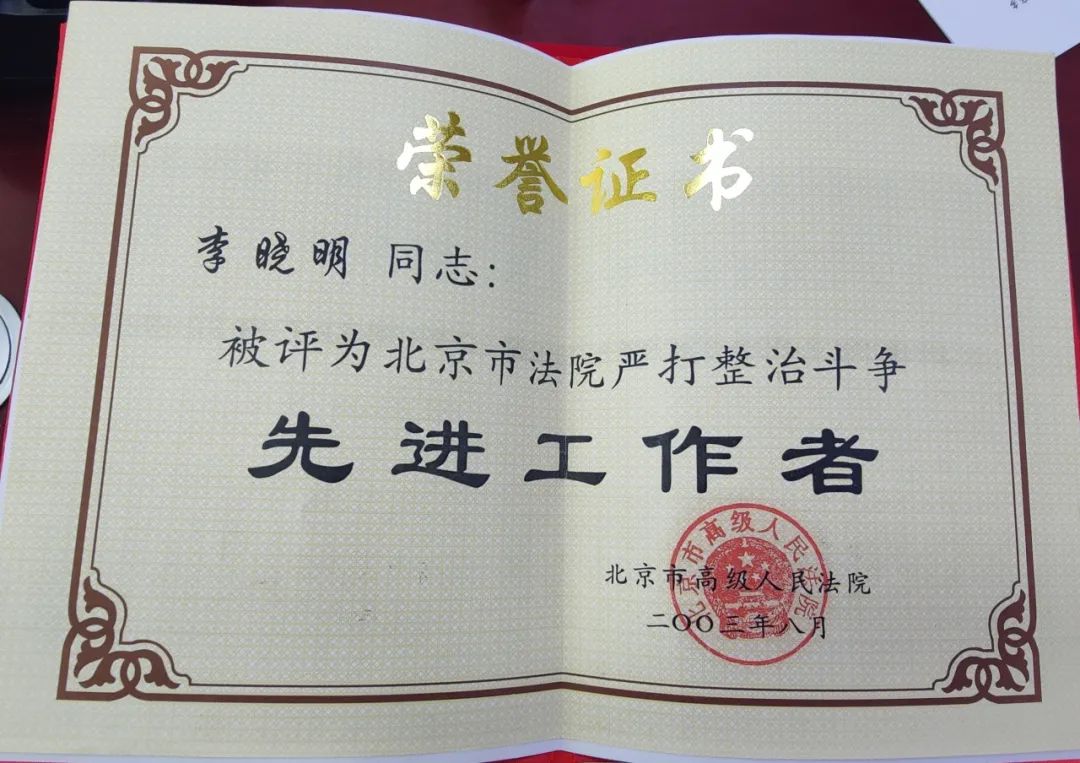 荣誉证书
李晓明 同志：
被评为北京市法院严打整治斗争
先进工作者
北京市高级人民法院
北京市高级人民法院
二〇〇三年八月